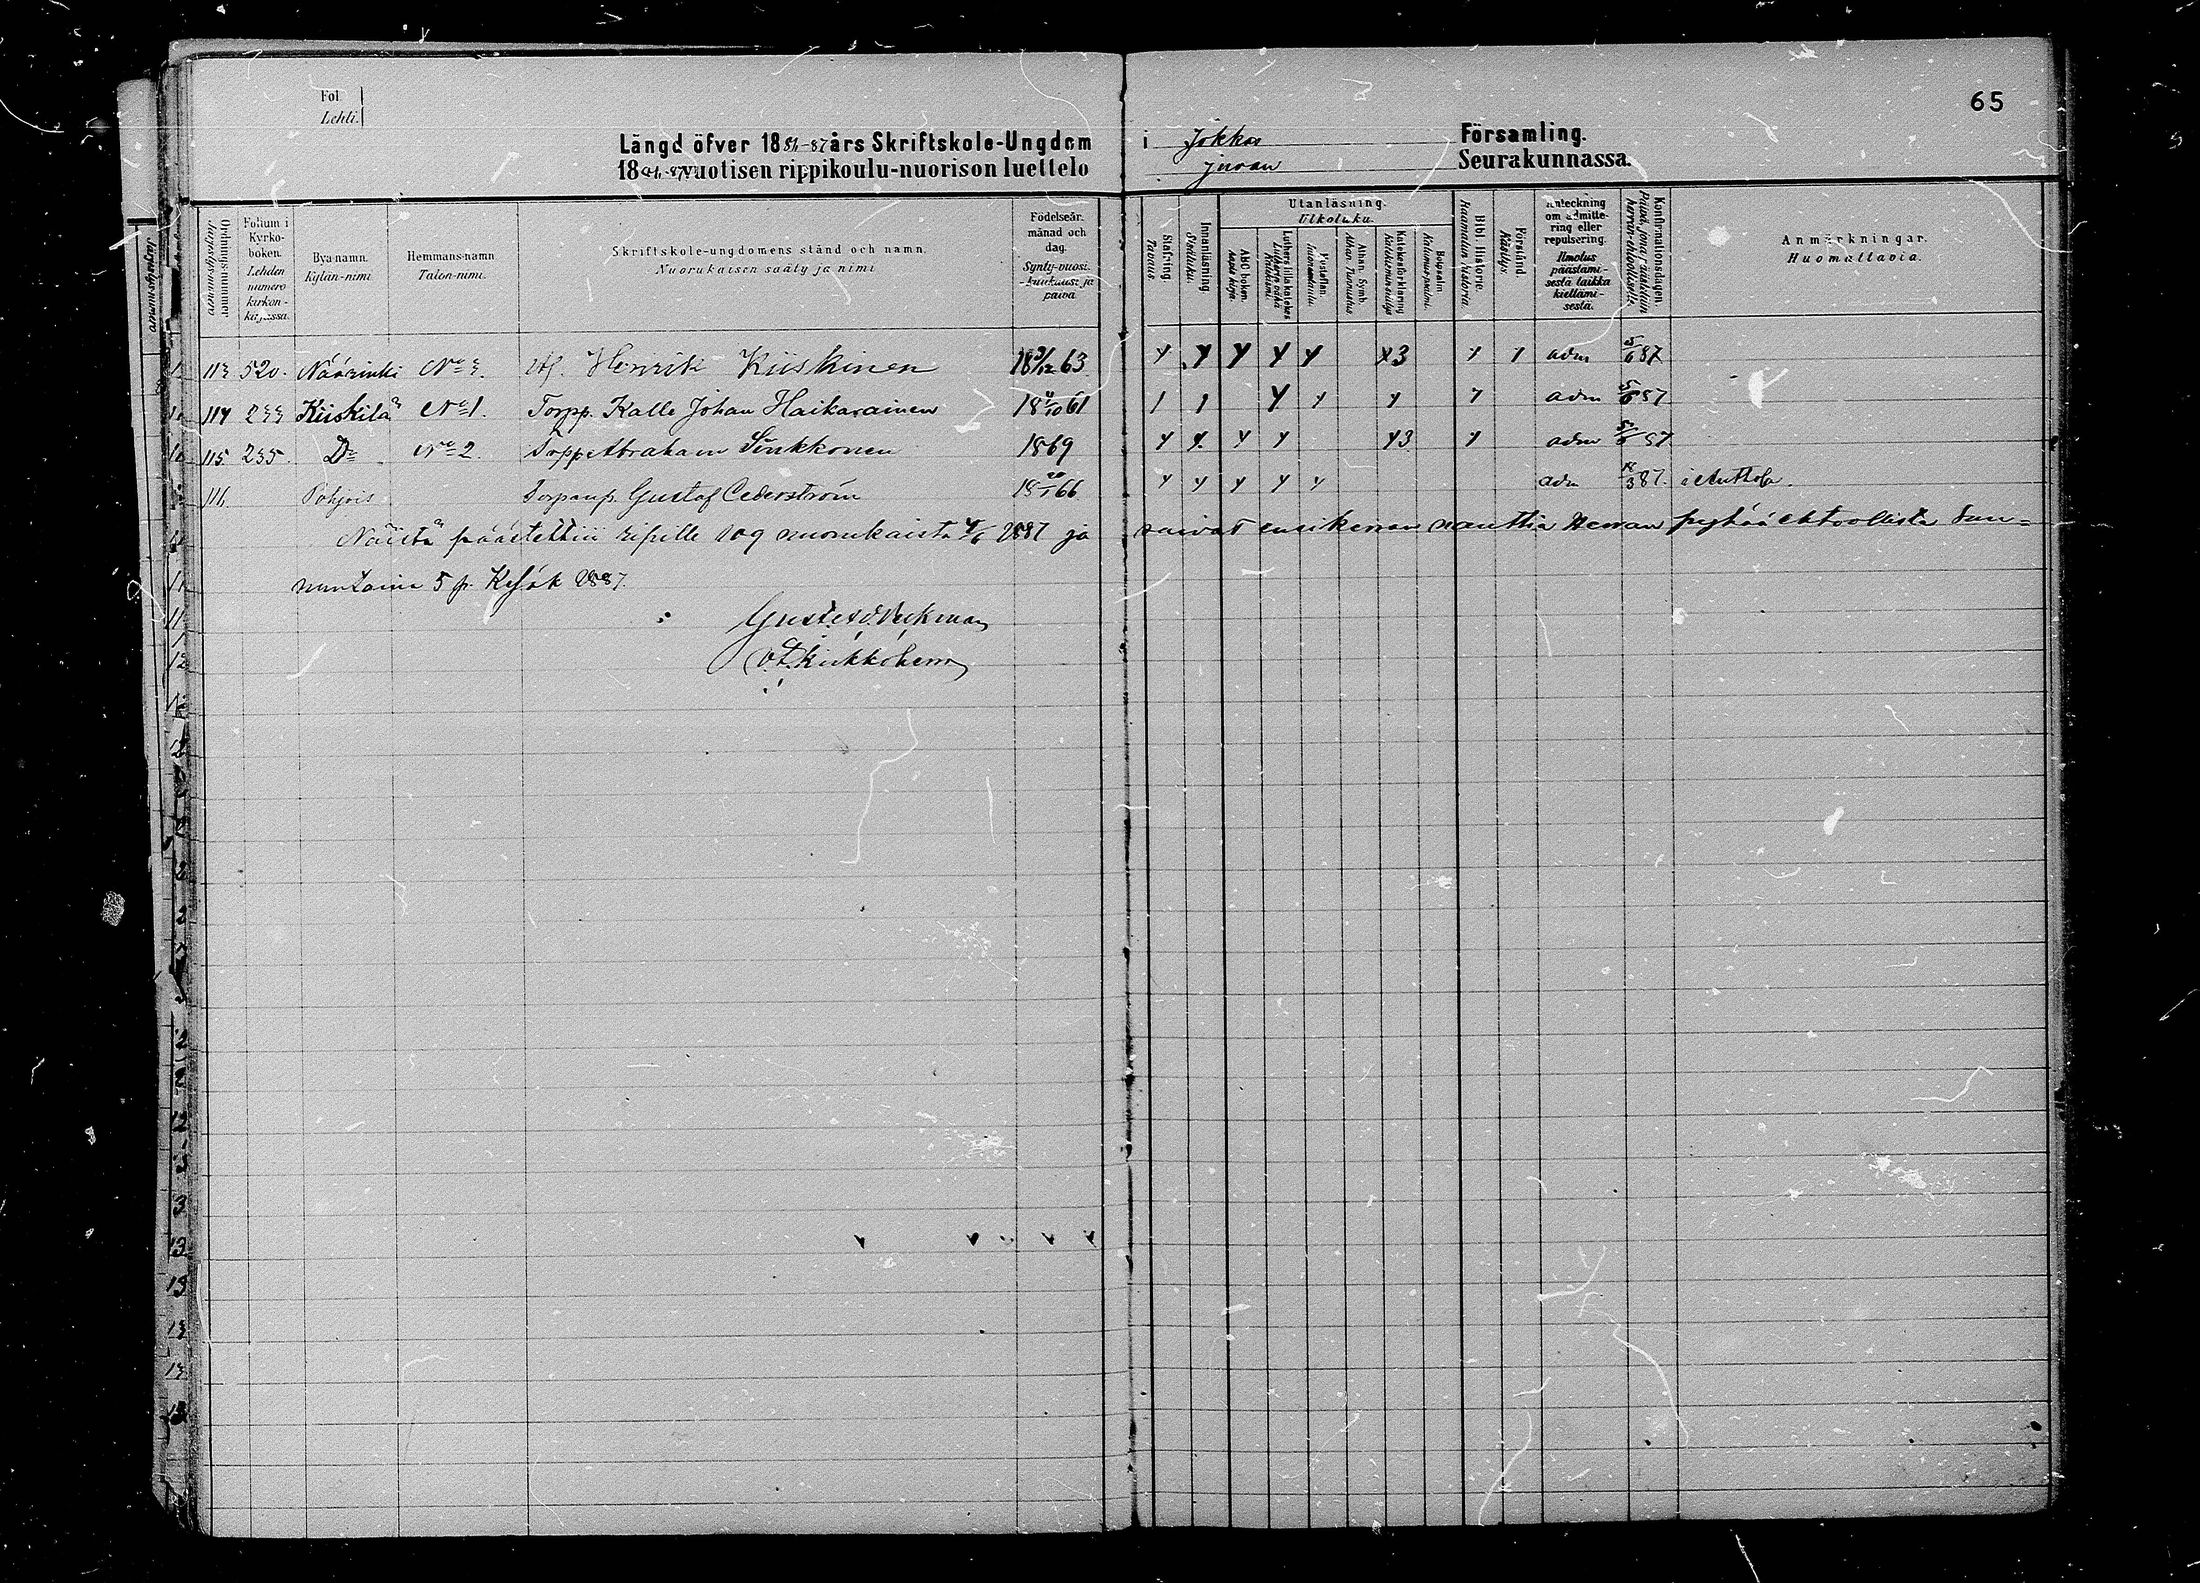 65
Fol
Lehti.
Längd öfver 1886-87 års Skriftskole-Ungdom i Jokkas Församling.
1886-87 vuotisen rippikoulu-nuorison luettelo Juvan Seurakunnassa.
Ordningsnummer. Järjestysnumero
Folium i Kyrko-boken. Lehden numero kirkon-kirjassa.
Bya-namn. Kylän-nimi
Hemmans-namn Talon-nimi.
Skriftskole-ungdomens stånd och namn. Nuorukaisen sääty ja nimi
Födelseår, månad och dag. Synty-vuosi, kuukausi ja päivä
Stafning. Tavaus.
Innanläsning. Sisäluku.
Utanläsning. Ulkoluku.
ABC boken. Aapis kirja
Luthers lilla katekes Lutherin vähä Katekismi
Hustaflan. Huoneentaulu.
Athan. Symb. Athan. Tunnustus
Katekesförklaring Katekismusselitys
Botpsalm Katumuspsalmi.
Bibl. Historie. Raamatun historia.
Förstånd Käsitys.
Anteckning om admitte-ring eller repulsering. Ilmotus päästämi-sestä taikka kieltämi-sestä.
Konfirmationsdagen. Päivä, jona päästetään herran-ehtoolliselle.
Anmärkningar. Huomattavia.
113 520. Näärinki No 3. Henrik Kiiskinen 18 31/12 63 adm 5/6 87
114 233 Kiiskilä No 1. Torpp. Kalle Johan Haikarainen 18 4/10 61 adm 5/6 87
115. 235. Do No 2. Torpp Abraham Sinkkonen 1869 adm 5/6 87
116. Pohjois Gustaf Cederström 18 20/1 66 adm 18/3 87. i Anttola.
Näistä päästettiin ripille 109 nuorukaista 4/6 1887 ja saivat ensikerran nauttia Herran pyhää ehtoollista Sun=
nuntaina 5 p. Kesäk 1887.